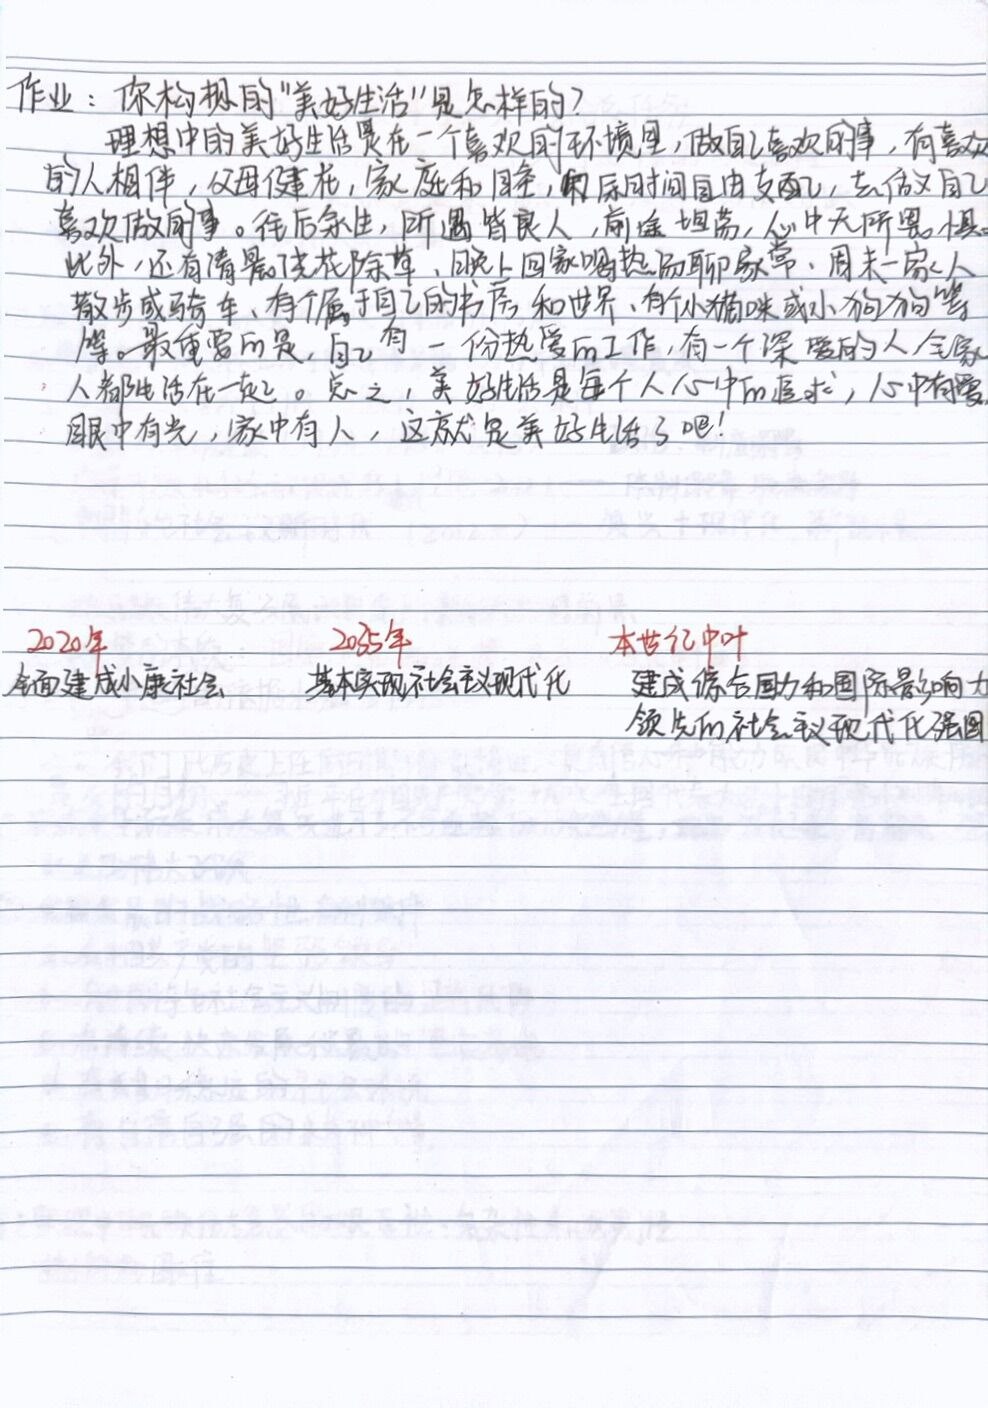 作业：你构想的"美好生活"是怎样的？
理想中的美好生活是在一个喜欢的环境里，做自己喜欢的事，有喜欢
的人相伴，父母健在，家庭和睦，所有时间自由支配，去做自己
喜欢做的事。往后余生，所遇皆良人，前途坦荡，心中无所畏惧。
此外，还有清晨浇花除草、晚上回家喝热汤聊家常、周末一家人
散步或骑车、有个属于自己的书房和世界、有个小猫咪或小狗狗等
等。最重要的是，自己有一份热爱的工作，有一个深爱的人全家
人都生活在一起。总之，美好生活是每个人心中的追求，心中有爱，
眼中有光，家中有人，这就是美好生活了吧！
2020年 2035年 本世纪中叶
全面建成小康社会 基本实现社会主义现代化 建成综合国力和国际影响力
领先的社会主义现代化强国